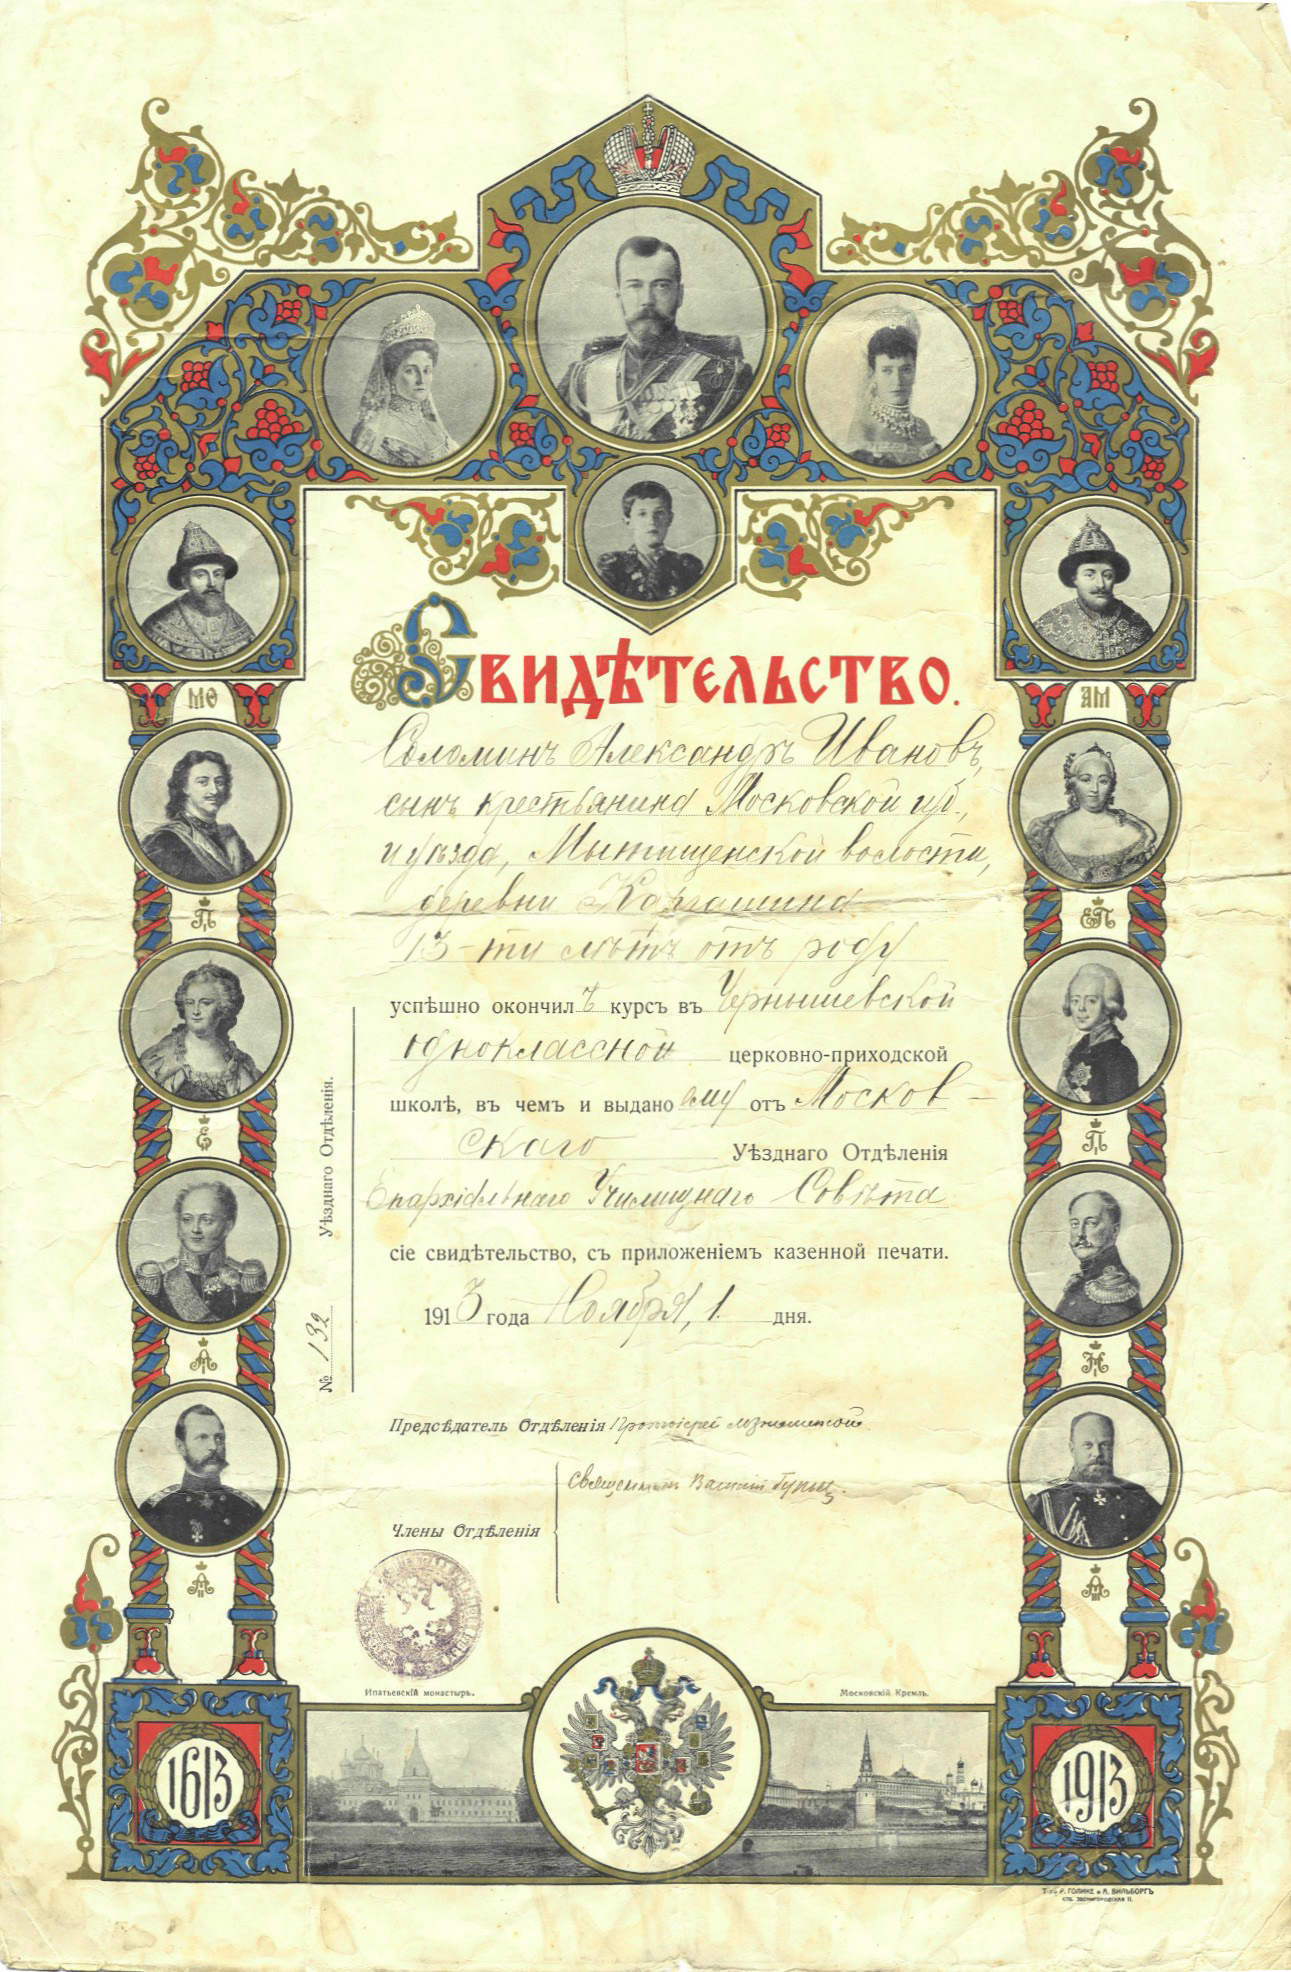 Свидѣтельство.
МѲ
АМ
Соломинъ Александръ Ивановъ,
сынъ крестьянина Московской губ.,
и уѣзда, Мытищенской волости,
деревни Каргашина
13-ти лѣтъ отъ роду
успѣшно окончилъ курсъ въ Чернышевской
одноклассной церковно-приходской
школѣ, въ чемъ и выдано ему отъ Москов-
скаго Уѣзднаго Отдѣленія
Епархіальнаго Училищнаго Совѣта
сіе свидѣтельство, съ приложеніемъ казенной печати.
1913 года Ноября, 1 дня.
№ 132 Уѣзднаго Отдѣленія.
Предсѣдатель Отдѣленія Протоіерей
Священникъ Василій
Члены Отдѣленія
П I
ЕП
Е II
П I
А I
Н I
А II
А III
Ипатьевскій монастырь.
Московскій Кремль.
1613
1913
Т-во Р. ГОЛИКЕ и А. ВИЛЬБОРГЪ
СПБ. ЗВЕНИГОРОДСКАЯ 11.